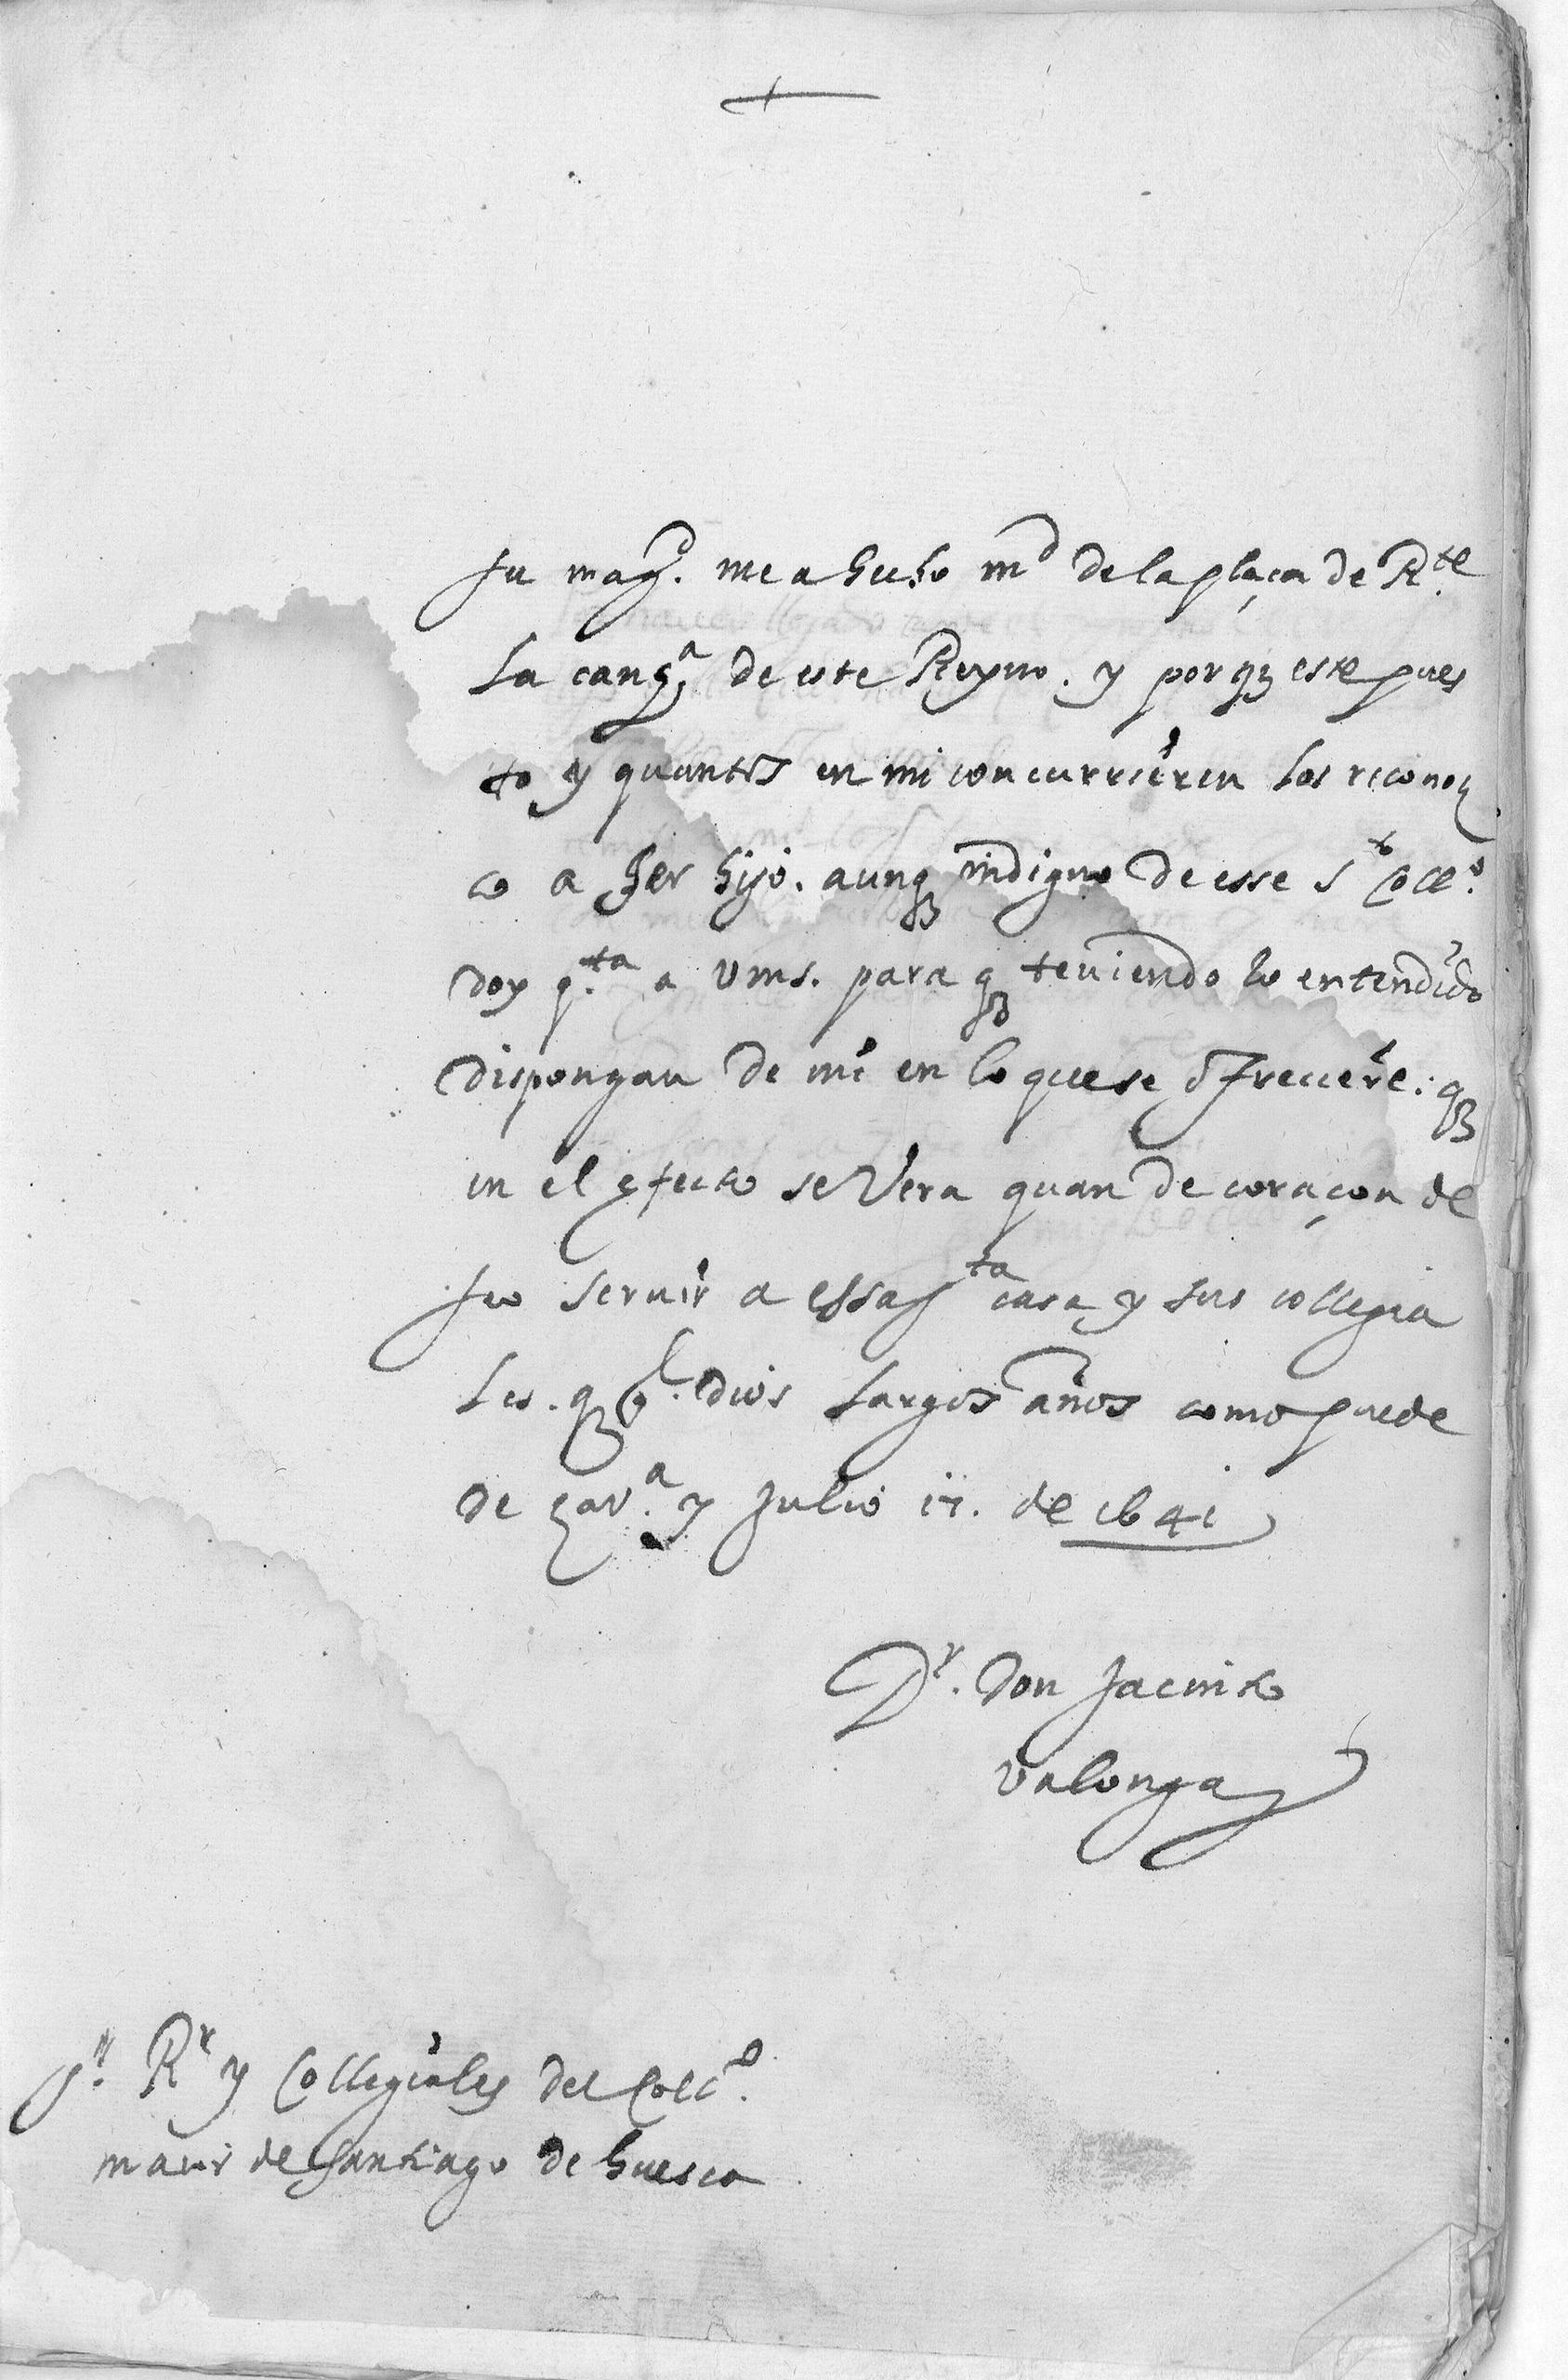 +
Su mag.d me a hecho md de la plaça de Rte
la canç.a de este Reyno. y porq este pues
to y quantos en mi concurrieren los reconoz
co a ser hijo. aunq indigno de esse Sto Colle.o
doy q.ta a Vms. para q teniendo lo entendido
dispongan de mi en lo que se offreciere. q
en el efecto se Vera quan de coraçon de
seo seruir a essa Sta casa y sus collegia
les. q g.e Dios largos años como puede
de çar.a y Julio 17. de 1641
Dr. Don Jacinto
Valonga
S.s Rr y Collegiales del Coll.o
maior de Santiago de huesca